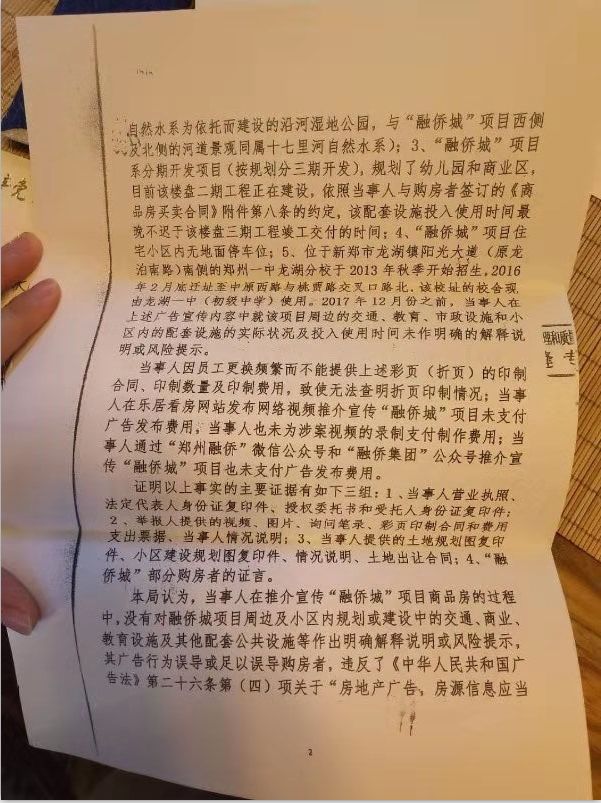 自然水系为依托而建设的沿河湿地公园，与“融侨城”项目西侧
及北侧的河道景观同属十七里河自然水系）；3、“融侨城”项目
系分期开发项目（按规划分三期开发），规划了幼儿园和商业区，
目前该楼盘二期工程正在建设，依照当事人与购房者签订的《商
品房买卖合同》附件第八条的约定，该配套设施投入使用时间最
晚不迟于该楼盘三期工程竣工交付的时间；4、“融侨城”项目住
宅小区内无地面停车位；5、位于新郑市龙湖镇阳光大道（原龙
泊南路）南侧的郑州一中龙湖分校于2013年秋季开始招生，2016
年2月底迁址至中原西路与桃贾路交叉口路北，该校址的校舍现
由龙湖一中（初级中学）使用。2017年12月份之前，当事人在
上述广告宣传内容中就该项目周边的交通、教育、市政设施和小
区内的配套设施的实际状况及投入使用时间未作明确的解释说
明或风险提示。
当事人因员工更换频繁而不能提供上述彩页（折页）的印制
合同、印制数量及印制费用，致使无法查明折页印制情况；当事
人在乐居看房网站发布网络视频推介宣传“融侨城”项目未支付
广告发布费用，当事人也未为涉案视频的录制支付制作费用；当
事人通过“郑州融侨”微信公众号和“融侨集团”公众号推介宣
传“融侨城”项目也未支付广告发布费用。
证明以上事实的主要证据有如下三组：1、当事人营业执照、
法定代表人身份证复印件、授权委托书和受托人身份证复印件；
2、举报人提供的视频、图片、询问笔录、彩页印制合同和费用
支出票据、当事人情况说明；3、当事人提供的土地规划图复印
件、小区建设规划图复印件、情况说明、土地出让合同；4、“融
侨城”部分购房者的证言。
本局认为，当事人在推介宣传“融侨城”项目商品房的过程
中，没有对融侨城项目周边及小区内规划或建设中的交通、商业、
教育设施及其他配套公共设施等作出明确解释说明或风险提示，
其广告行为误导或足以误导购房者，违反了《中华人民共和国广
告法》第二十六条第（四）项关于“房地产广告，房源信息应当
2